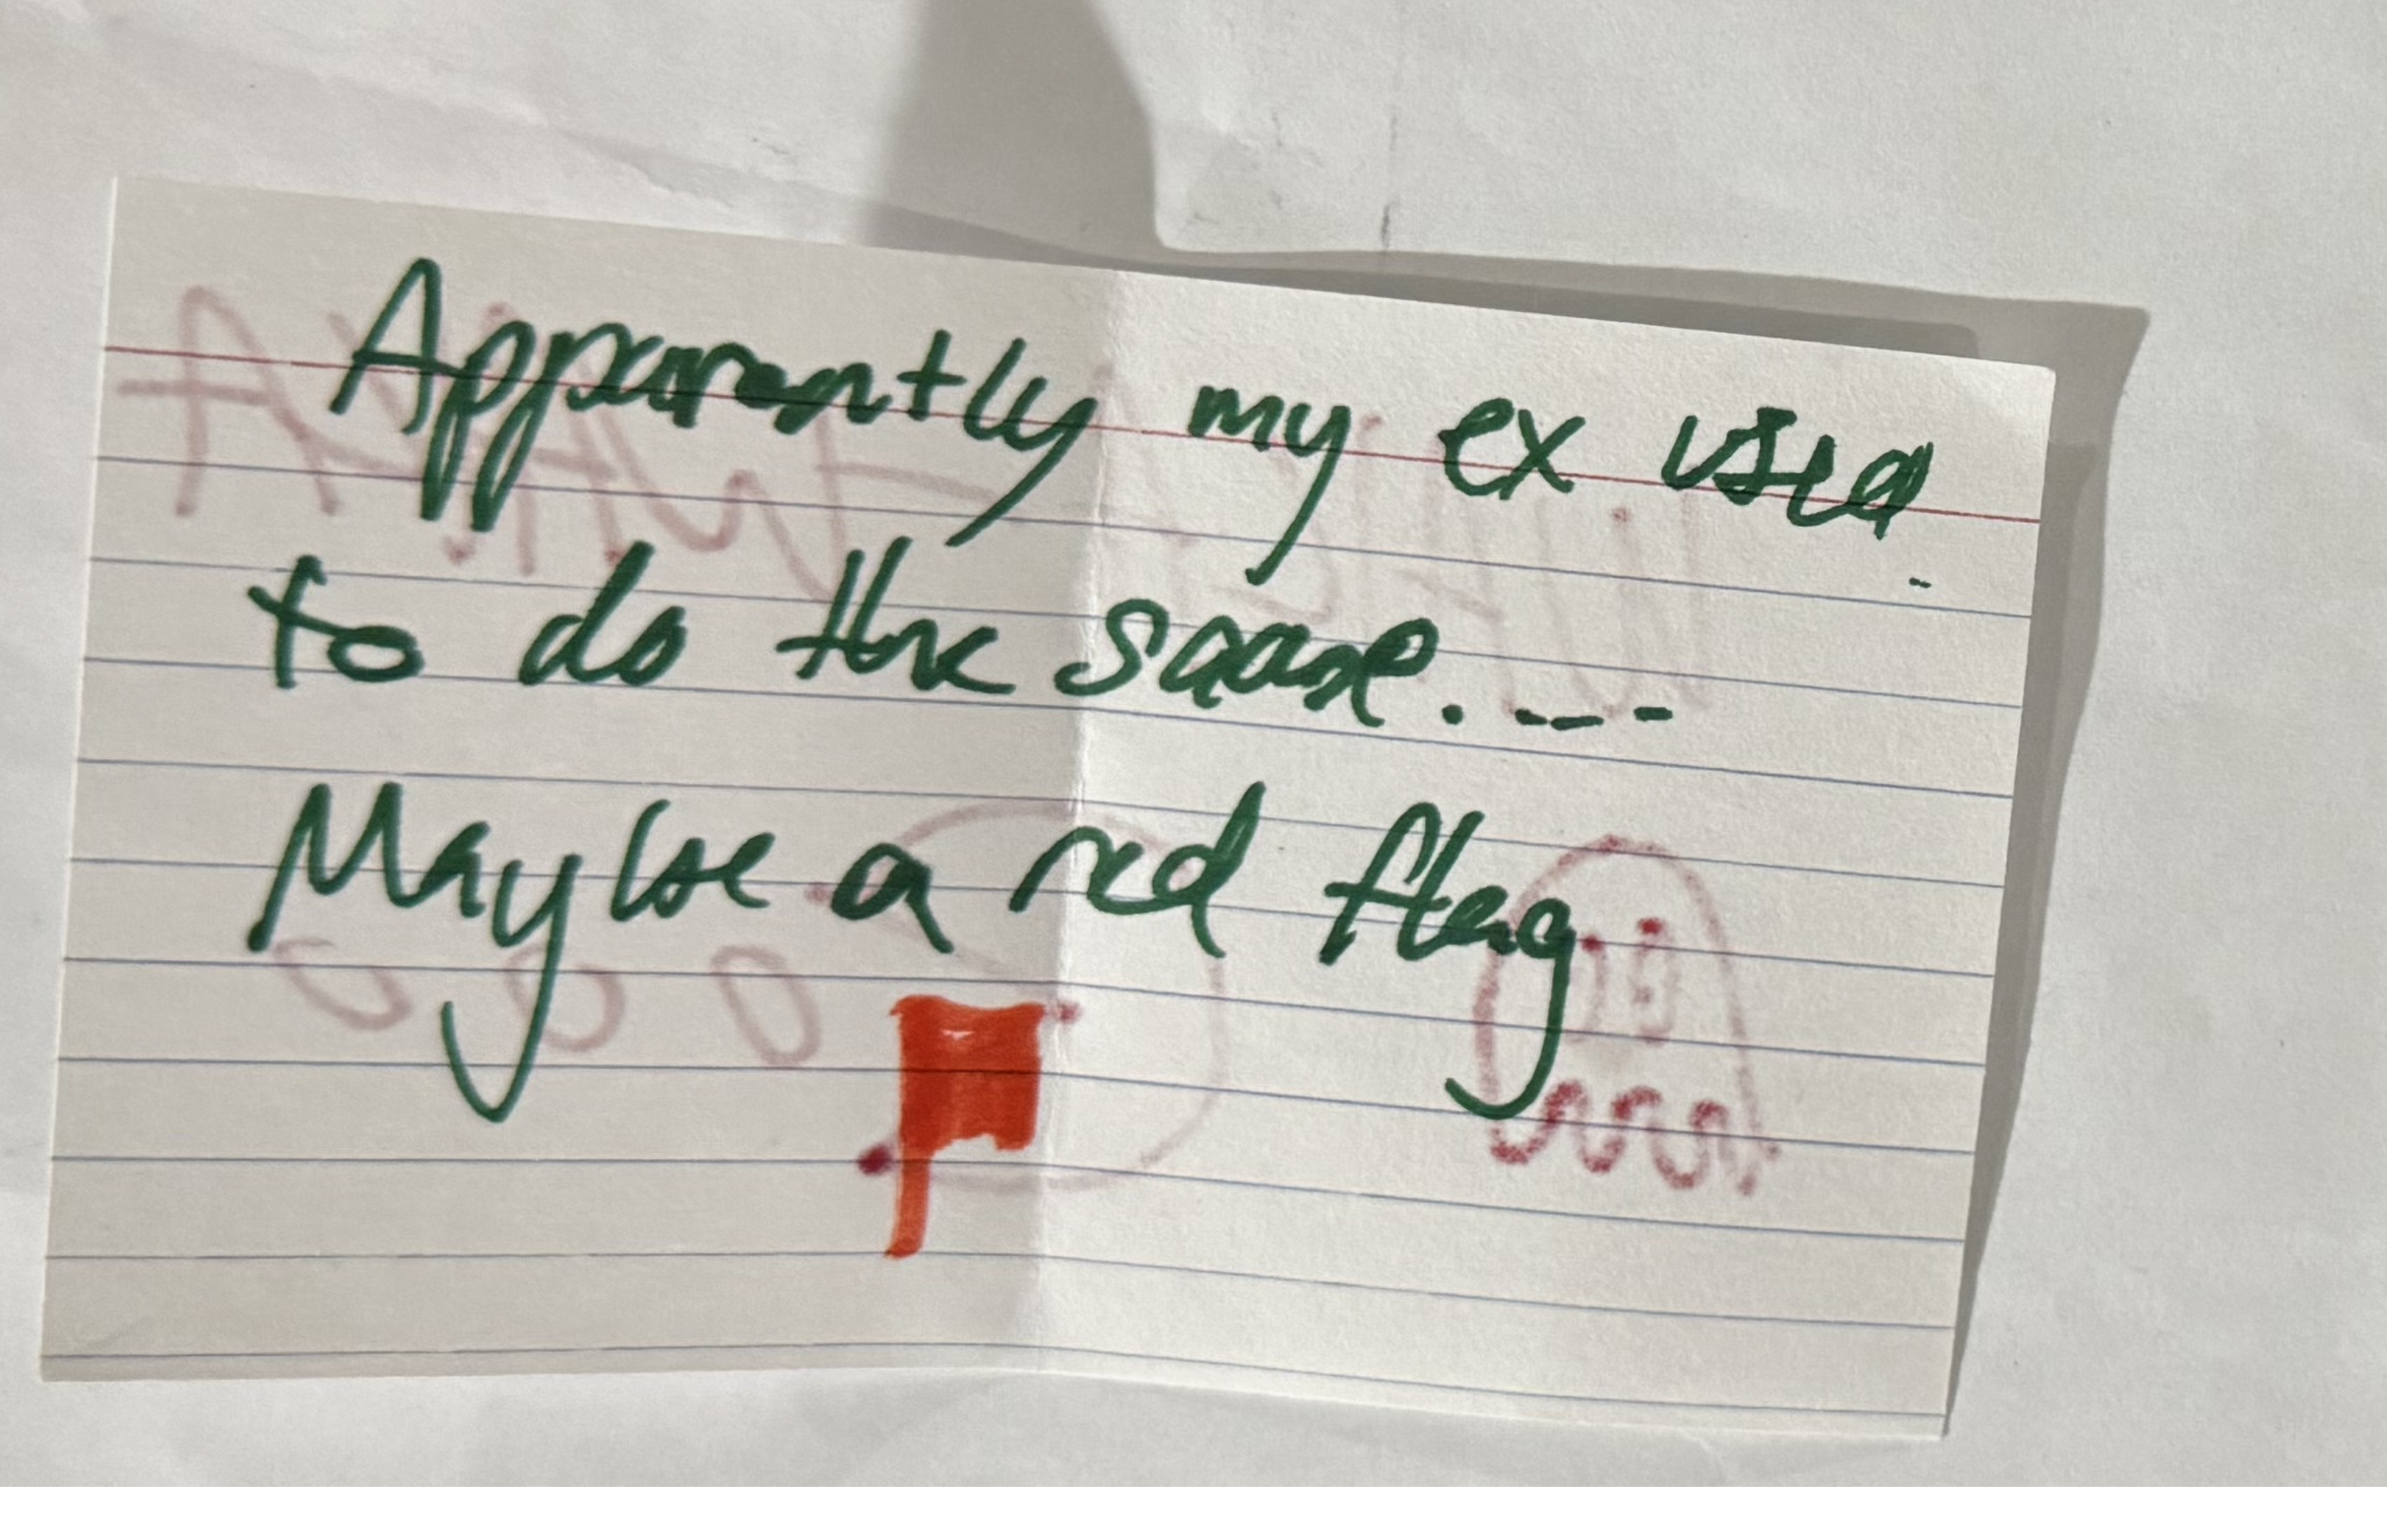 Apparently my ex used
to do the same....
Maybe a red flag